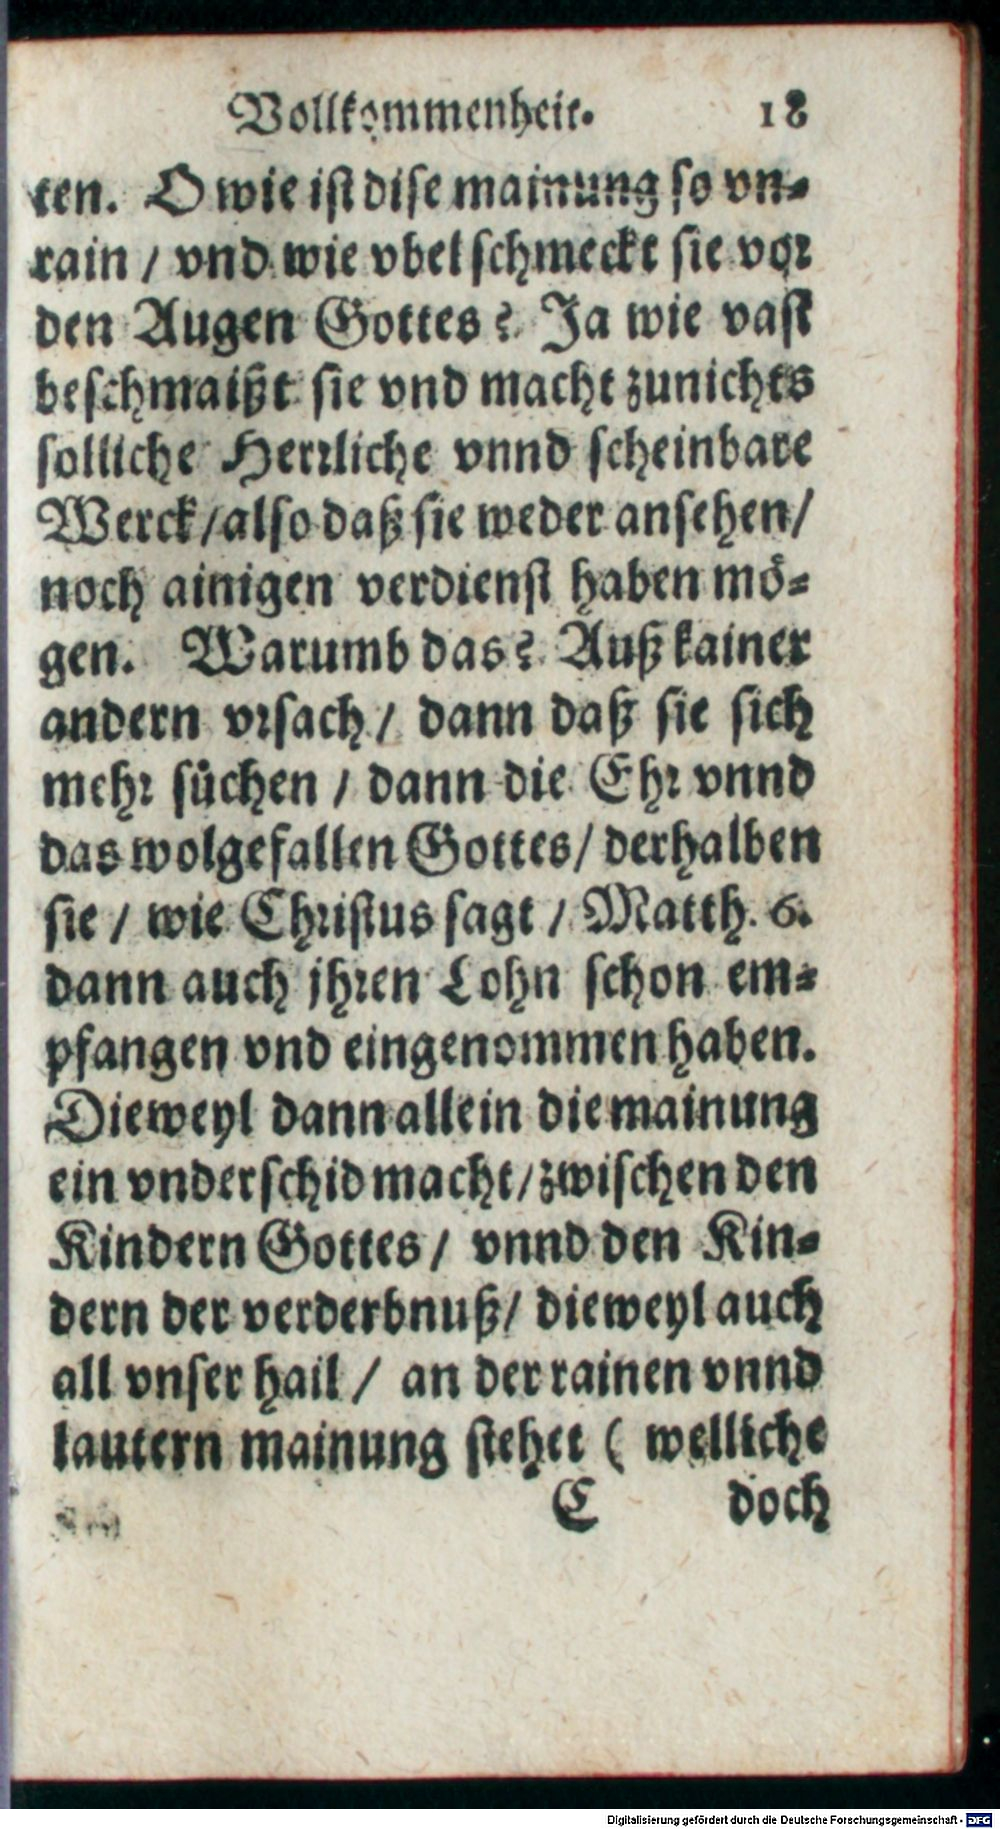 Vollkommenheit. 18
ten. O wie ist dise mainung so vn-
rain / vnd wie vbel schmeckt sie vor
den Augen Gottes? Ja wie vast
beschmaißt sie vnd macht zunichts
solliche Herrliche vnnd scheinbare
Werck / also daß sie weder ansehen /
noch ainigen verdienst haben mö-
gen. Warumb das? Auß kainer
andern vrsach / dann daß sie sich
mehr süchen / dann die Ehr vnnd
das wolgefallen Gottes / derhalben
sie / wie Christus sagt / Matth. 6.
dann auch jhren Lohn schon em-
pfangen vnd eingenommen haben.
Dieweyl dann allein die mainung
ein vnderschid macht / zwischen den
Kindern Gottes / vnnd den Kin-
dern der verderbnuß / dieweyl auch
all vnser hail / an der rainen vnnd
lautern mainung stehet ( welliche
C doch
Digitalisierung gefördert durch die Deutsche Forschungsgemeinschaft - DFG